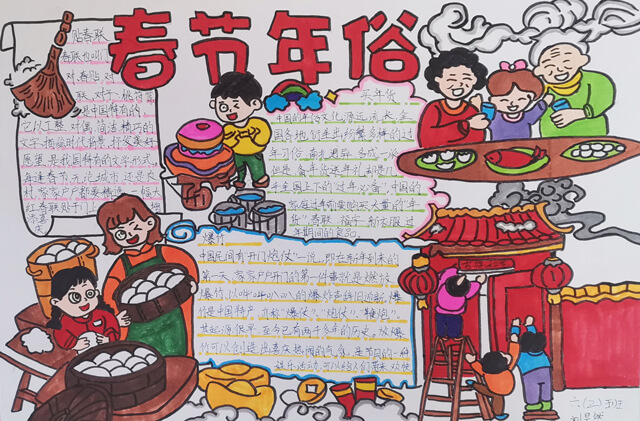 春节年俗
贴春联
春联也叫门
对、春贴、对
联、对子、桃符等
是中国特有的
它以工整、对偶、简洁、精巧的
文字描绘时代背景、抒发美好
愿望,是我国特有的文学形式。
每逢春节,无论城市还是农
村,家家户户都要精选一幅大
红春联贴于门上
买年货
中国的年俗文化源远流长,全
国各地衍生出纷繁多样的过
年习俗,南北迥异,各成一派
但是备年货送年礼却是几
乎全国上下的“过年必备”,中国的
家庭过年前要购买大量的“年
货”,春联、福字、新衣服,过
年期间的食品。
爆竹
中国民间有“开门炮仗”一说。即在新年到来的
第一天,家家户户开门的第一件事就是燃放
爆竹,以哔哔叭叭的爆炸声辞旧迎新。爆
竹是中国特产,亦称“爆仗”、“炮仗”、“鞭炮”。
其起源很早,至今已有两千多年的历史。放爆
竹可以创造出喜庆热闹的气氛,是节日的一种
娱乐活动,可以给人们带来欢快
六(2)班